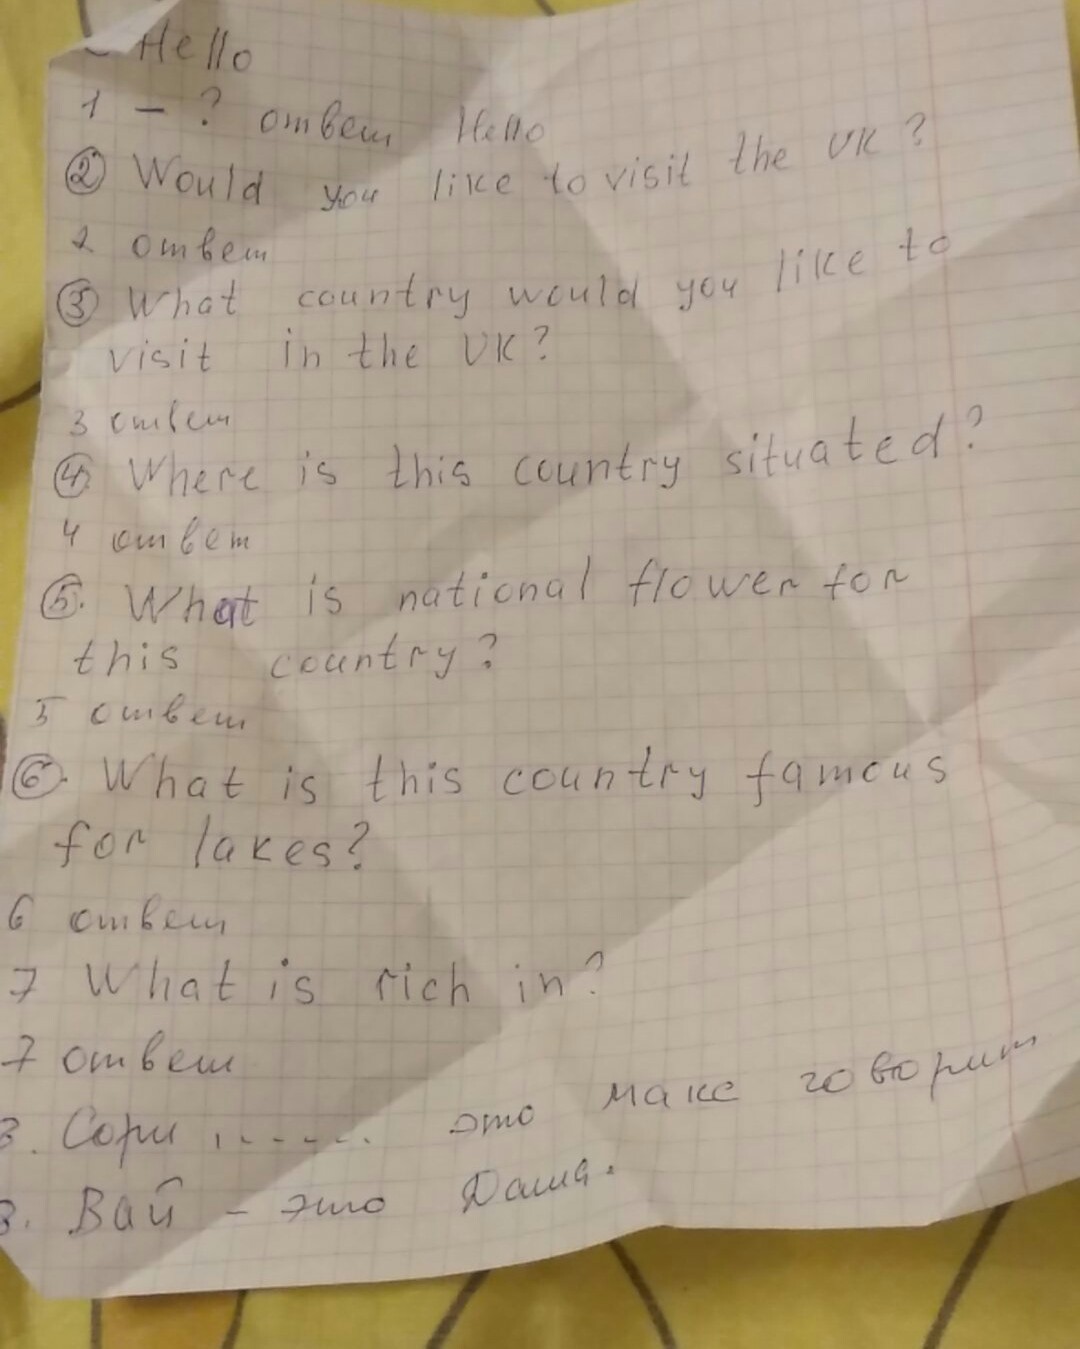 - Hello
1 - ? ответ Hello
② Would you like to visit the UK?
2 ответ
③ What country would you like to
visit in the UK?
3 ответ
④ Where is this country situated?
4 ответ
⑤. What is national flower for
this country?
5 ответ
⑥. What is this country famous
for lakes?
6 ответ
7 What is rich in?
7 ответ
8. Сори, ..... это макс говорит
8. Вай - это Даша.